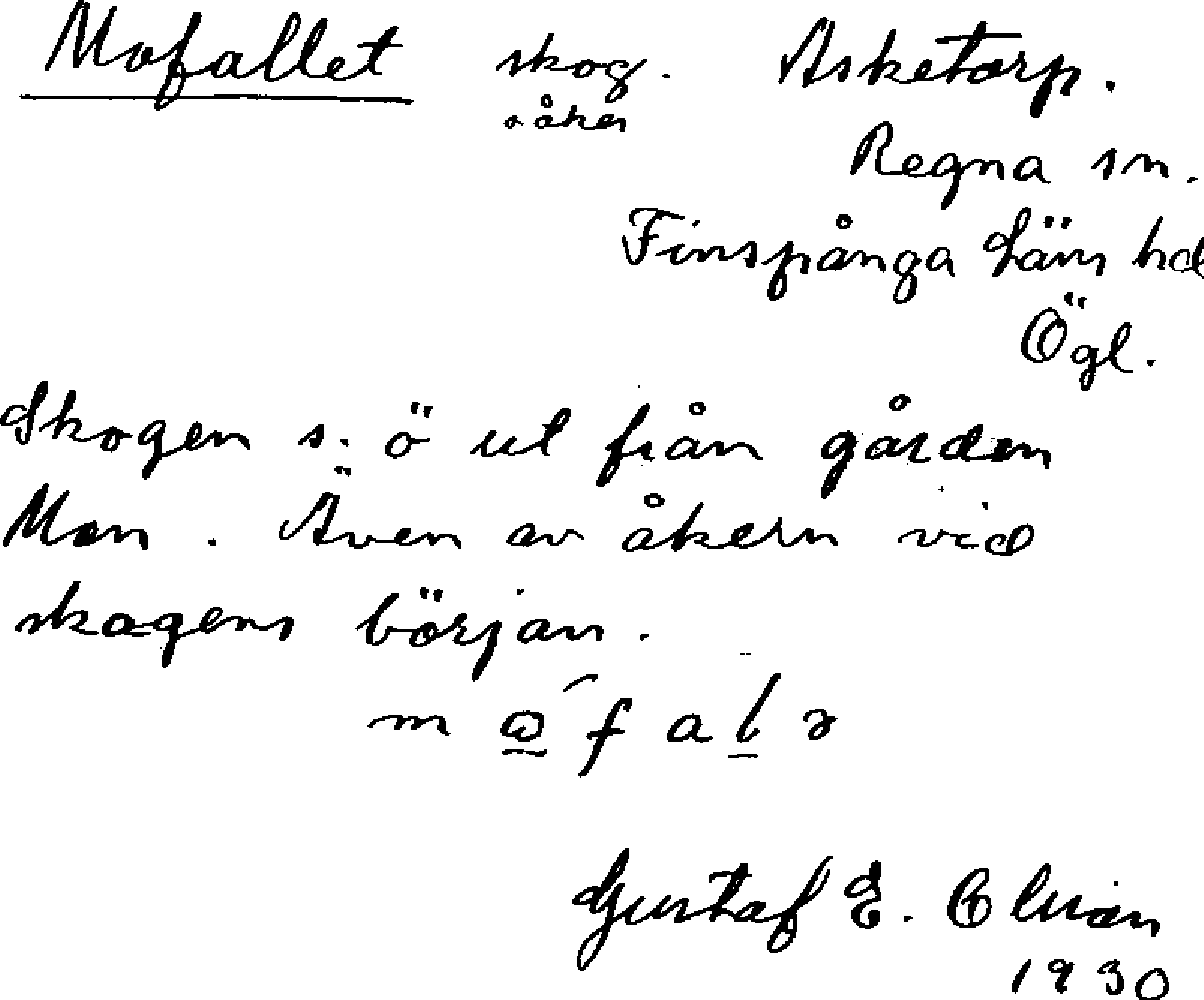 Mofallet skog. Asketorp.
o åker
Regna sn.
Finspånga läns hd
Ögl.
Skogen s. ö ut från gården
Mon. Även av åkern vid
skogens början.
Gustaf E.
1930